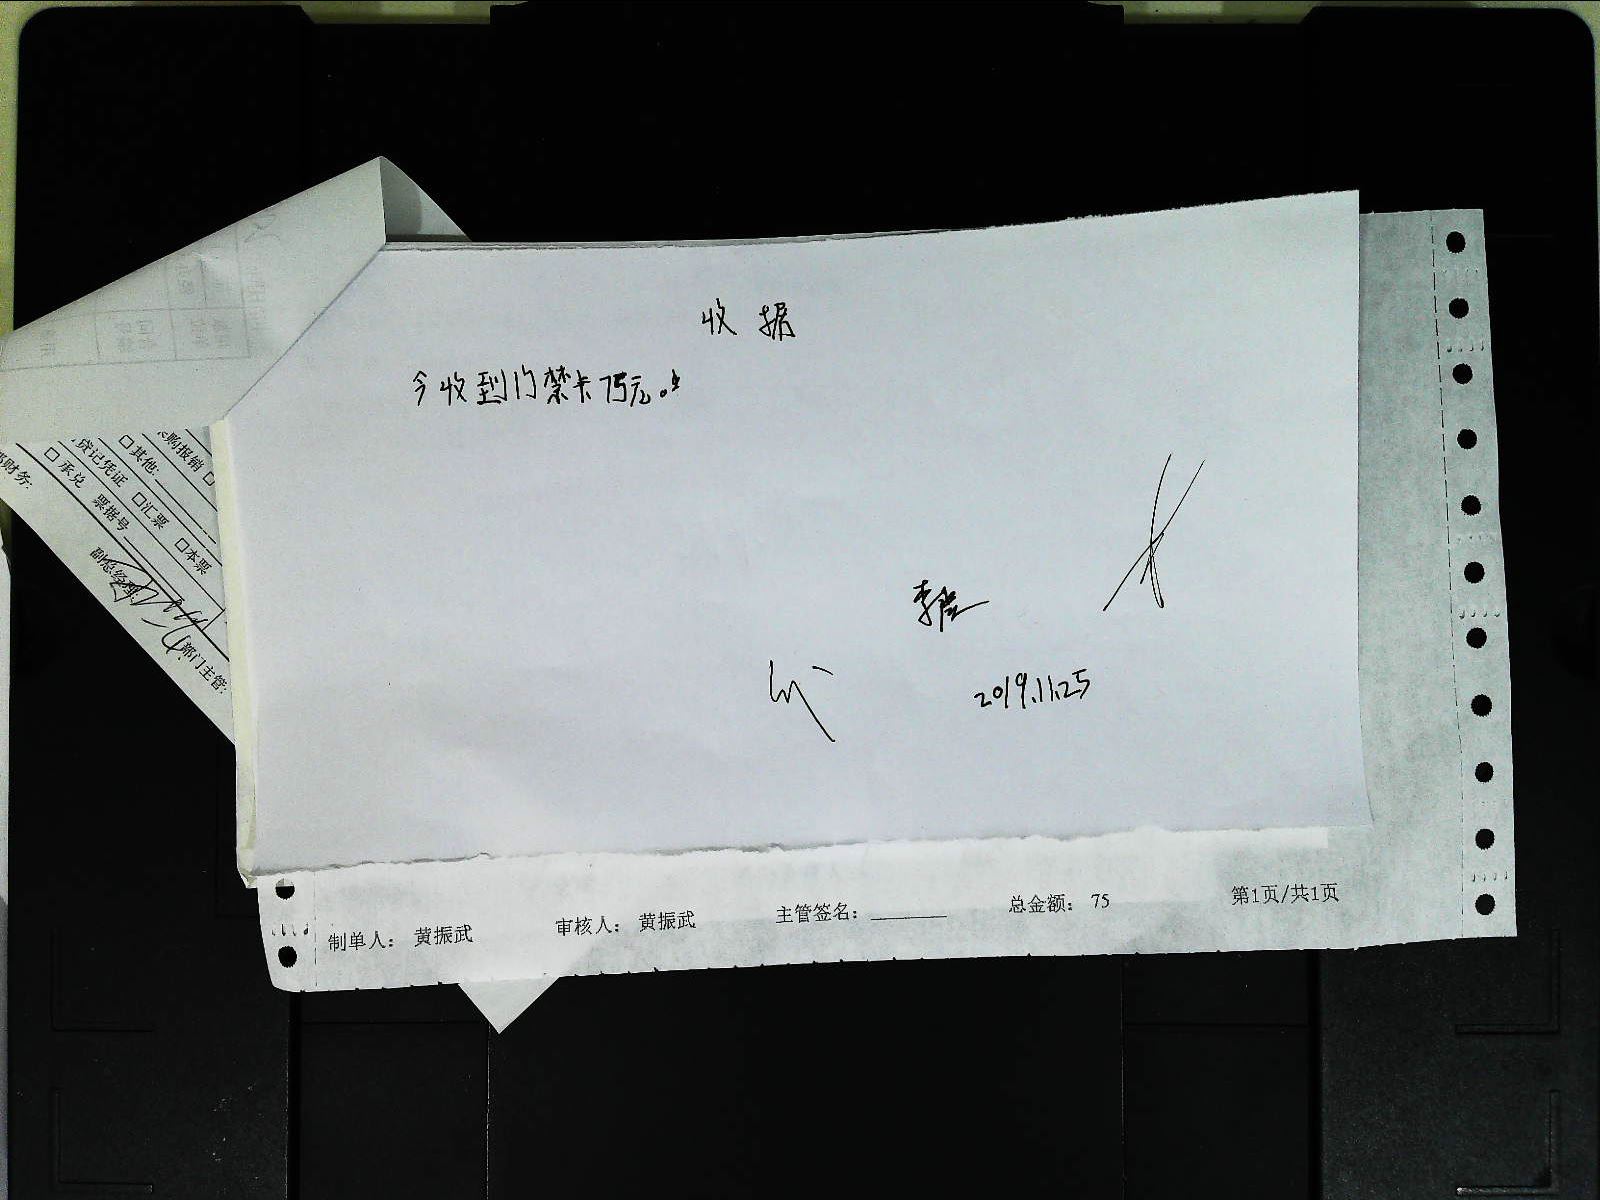 收据
今收到门禁卡75元。
2019.11.25
采购报销 □
□其他:
贷记凭证 □汇票 □本票
□承兑 票据号
部财务:
副总经理:
部门主管:
制单人: 黄振武 审核人: 黄振武 主管签名: 总金额: 75 第1页/共1页